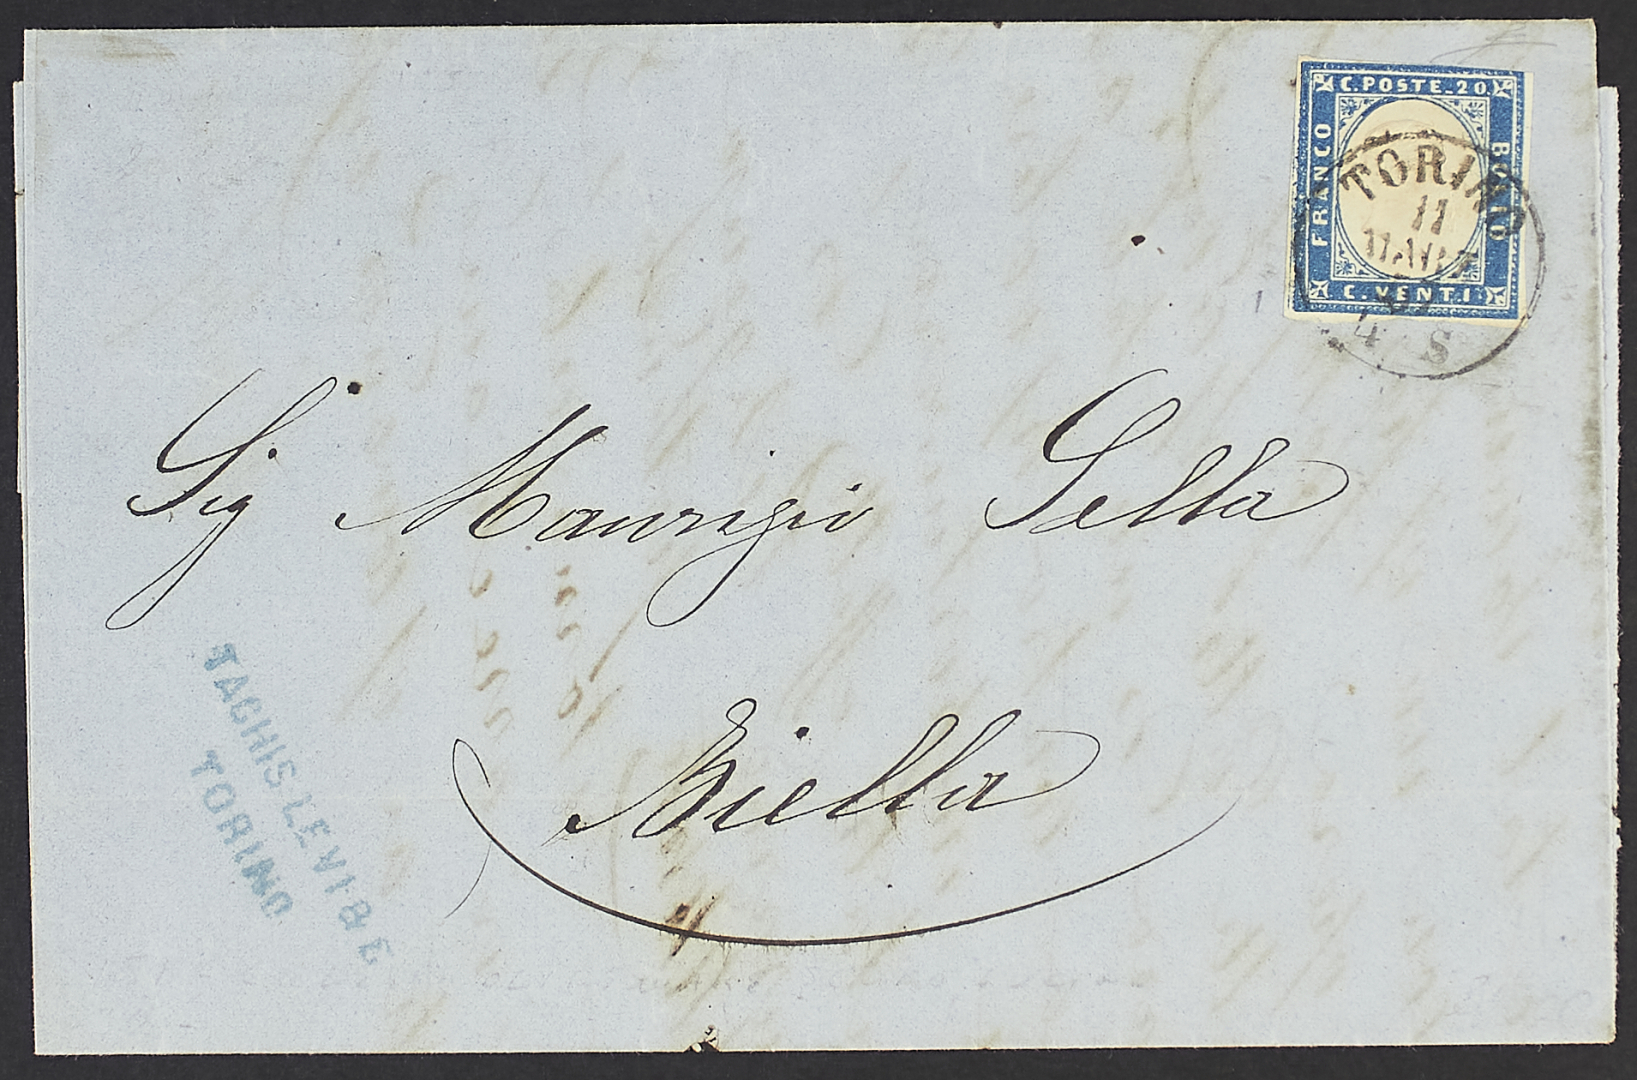 C. POSTE. 20.
FRANCO
BOLLO
C. VENTI.
TORINO
11
4 S
Sig Maurizio Sella
Biella
TACHIS LEVI & C
TORINO